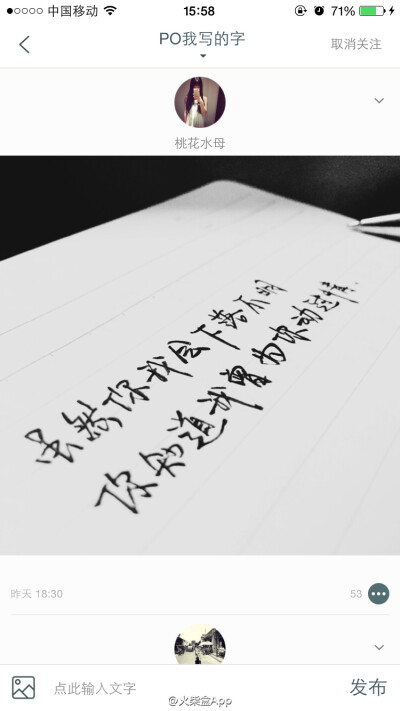 中国移动 15:58 71%
PO我写的字
取消关注
桃花水母
虽然你我会下落不明
你知道我曾为你动过情
昨天 18:30
53
点此输入文字
发布
@火柴盒App